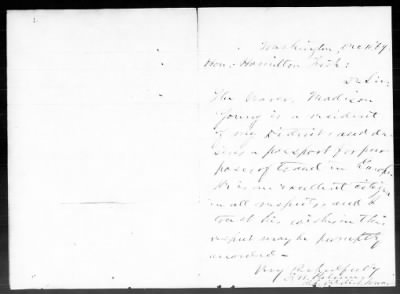 Washington,
Hon: Hamilton Fish:
Dr Sir:
The bearer, Madison
Young is a resident
of my District and de-
sires a passport for pur-
poses of travel in Europe
He is an excellent citizen
in all respects and I
trust his wishes in this
respect may be promptly
accorded -
Very Respectfully